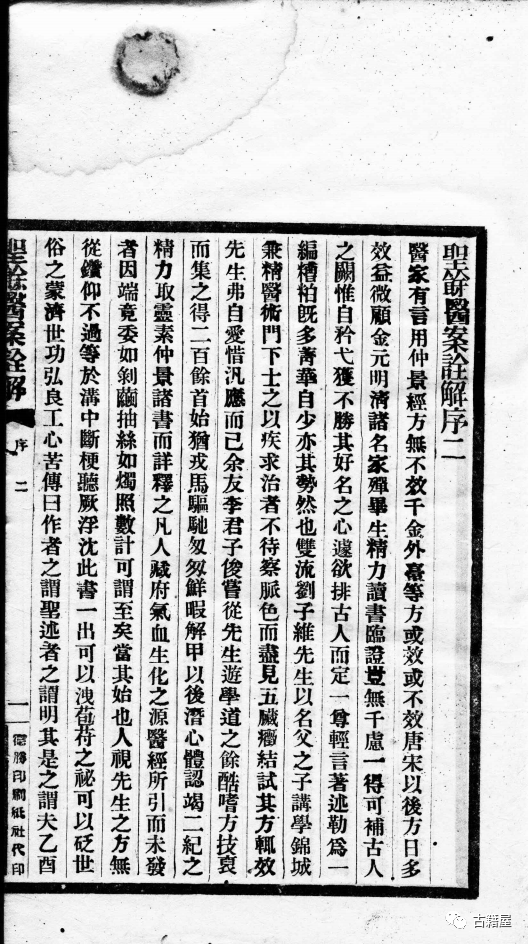 聖餘醫案詮解序二
醫家有言用仲景經方無不效千金外臺等方或效或不效唐宋以後方日多
效益微顧金元明清諸名家殫畢生精力讀書臨證豈無千慮一得可補古人
之闕惟自矜弋獲不勝其好名之心遽欲排古人而定一尊輕言著述勒爲一
編糟粕旣多菁華自少亦其勢然也雙流劉子維先生以名父之子講學錦城
兼精醫術門下士之以疾求治者不待察脈色而盡見五臟癥結試其方輒效
先生弗自愛惜汎應而已余友李君子俊嘗從先生遊學道之餘酷嗜方技裒
而集之得二百餘首始猶戎馬驅馳匆匆鮮暇解甲以後潛心體認竭二紀之
精力取靈素仲景諸書而詳釋之凡人藏府氣血生化之源醫經所引而未發
者因端竟委如剝繭抽絲如燭照數計可謂至矣當其始也人視先生之方無
從鑽仰不過等於溝中斷梗聽厥浮沈此書一出可以洩苞苻之祕可以砭世
俗之蒙濟世功弘良工心苦傳曰作者之謂聖述者之謂明其是之謂夫乙酉
聖餘醫案詮解
序
二
一
德勝印刷紙社代印
古籍屋